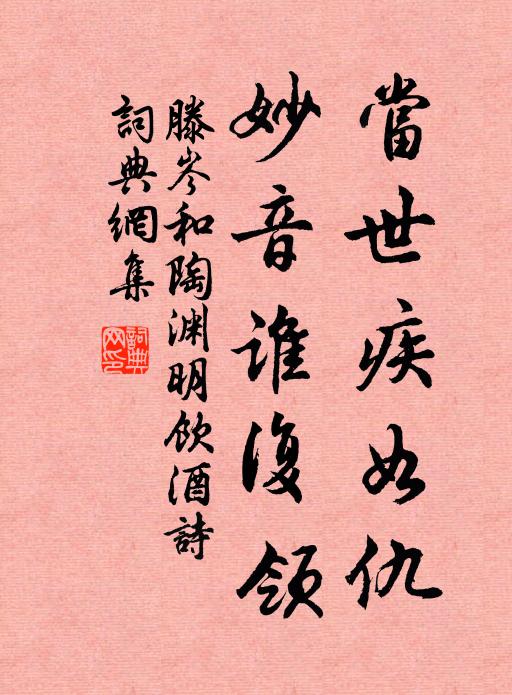 當世疾如仇
妙音誰復領
滕岑和陶渊明飲酒詩
詞典網集
詞典网印